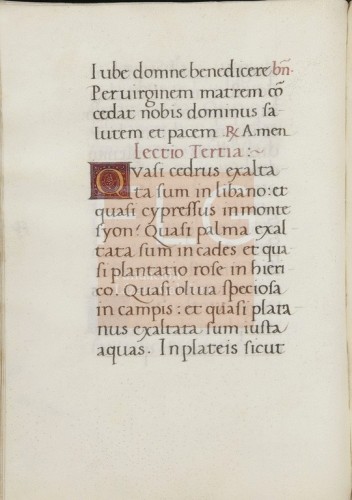 Iube domne benedicere bn̄.
Per uirginem matrem cō
cedat nobis dominus sa
lutem et pacem ℞ Amen
Lectio Tertia :~
Qvasi cedrus exalta
ta sum in libano: et
quasi cypressus in monte
syon. Quasi palma exal
tata sum in cades et qua
si plantatio rose in hieri
co. Quasi oliua speciosa
in campis: et quasi plata
nus exaltata sum iusta
aquas. In plateis sicut